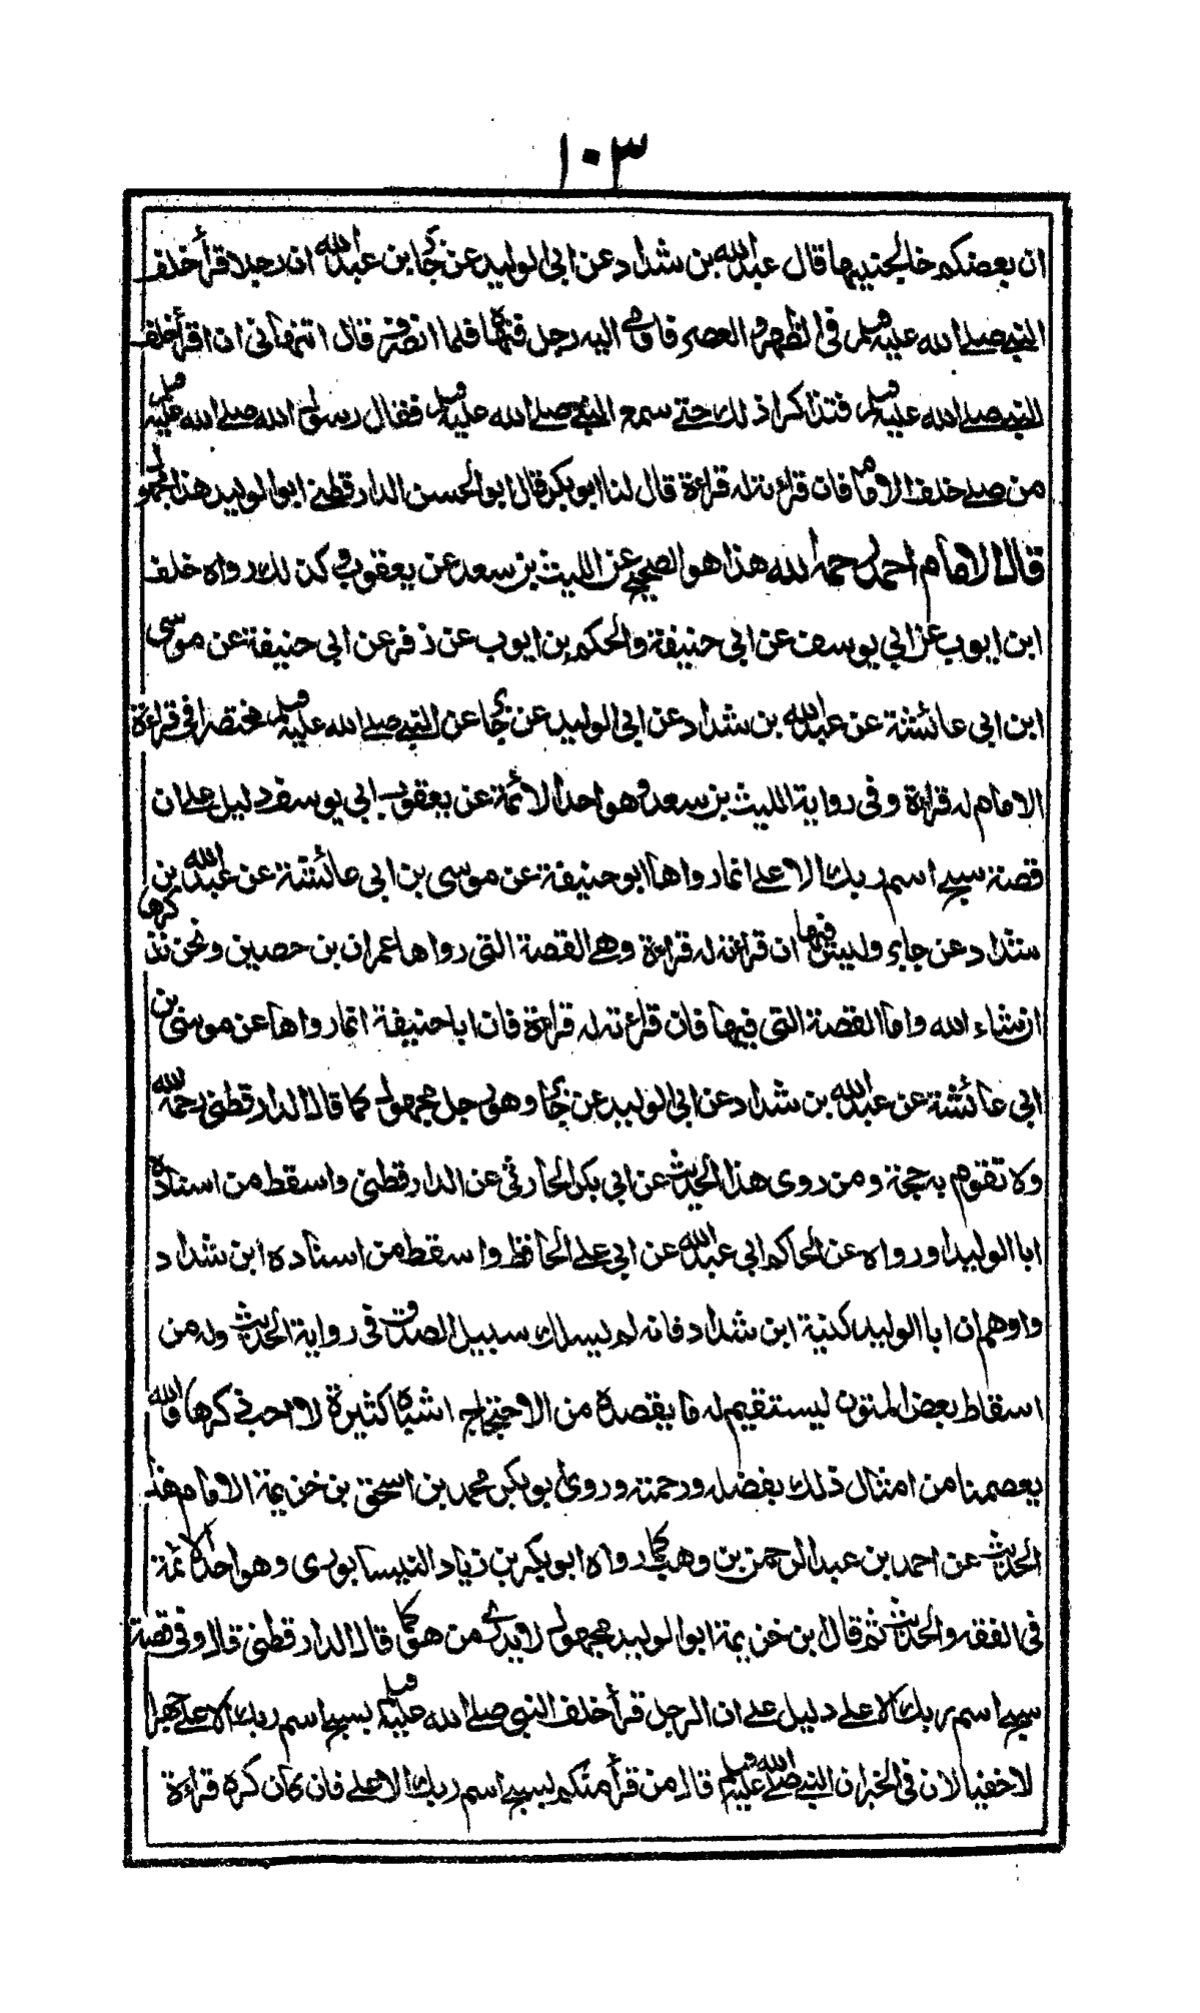 ١٠٣
ان بعضكم خالجنيها قال عبد الله بن شداد عن ابى الوليد عن جابر بن عبد الله ان رجلا قرأ خلف
النبي صلى الله عليه وسلم فى الظهر و العصر فاومى اليه رجل فنهاه فلما انصرف قال اتنهانى ان اقرأ خلف
النبي صلى الله عليه وسلم فتذاكرا ذلك حتى سمع النبي صلى الله عليه وسلم فقال رسول الله صلى الله عليه وسلم
من صلى خلف الامام فان قراءته له قراءة قال لنا ابو بكر قال ابو الحسن الدارقطني ابو الوليد هذا مجهول
قال الامام احمد رحمه الله هذا هو الصحيح عن الليث بن سعد عن يعقوب وكذلك رواه خلف
ابن ايوب عن ابي يوسف عن ابى حنيفة والحكم بن ايوب عن زفر عن ابى حنيفة عن موسى
ابن ابى عائشة عن عبد الله بن شداد عن ابى الوليد عن جابر عن النبي صلى الله عليه وسلم مختصرا فى قراءة
الامام له قراءة وفى رواية الليث بن سعد وهو احد الائمة عن يعقوب ابى يوسف دليل على ان
قصة سبح اسم ربك الاعلى انما رواها ابو حنيفة عن موسى بن ابى عائشة عن عبد الله بن
شداد عن جابر وليس فيها ان قراءته له قراءة وهى القصة التى رواها عمران بن حصين ونحن نذكرها
ان شاء الله واما القصة التى فيها فان قراءته له قراءة فان ابا حنيفة انما رواها عن موسى بن
ابى عائشة عن عبد الله بن شداد عن ابى الوليد عن جابر وهو رجل مجهول كما قال الدارقطنى رحمه الله
ولا تقوم به حجة ومن روى هذا الحديث عن ابى بكر الحارثى عن الدارقطنى واسقط من اسناده
ابا الوليد او رواه عن الحاكم ابى عبد الله عن ابى على الحافظ واسقط من اسناده ابن شداد
واوهم ان ابا الوليد كنية ابن شداد فانه لم يسلك سبيل الصدق فى رواية الحديث وله من
اسقاط بعض المتون ليستقيم له ما يقصده من الاحتجاج اشياء كثيرة لا احب ذكرها والله
يعصمنا من امثال ذلك بفضله ورحمته وروى ابو بكر محمد بن اسحق بن خزيمة الامام هذا
الحديث عن احمد بن عبد الرحمن بن وهب كما رواه ابو بكر بن زياد النيسابورى وهو احد الائمة
فى الفقه والحديث ثم قال ابن خزيمة ابو الوليد مجهول لا يدرى من هو كما قال الدارقطنى قال وفى قصة
سبح اسم ربك الاعلى دليل على ان الرجل قرأ خلف النبى صلى الله عليه وسلم بسبح اسم ربك الاعلى جهرا
لا خفيا لان فى الخبر ان النبي صلى الله عليه وسلم قال من قرأ منكم بسبح اسم ربك الاعلى فان كان كره قراءة